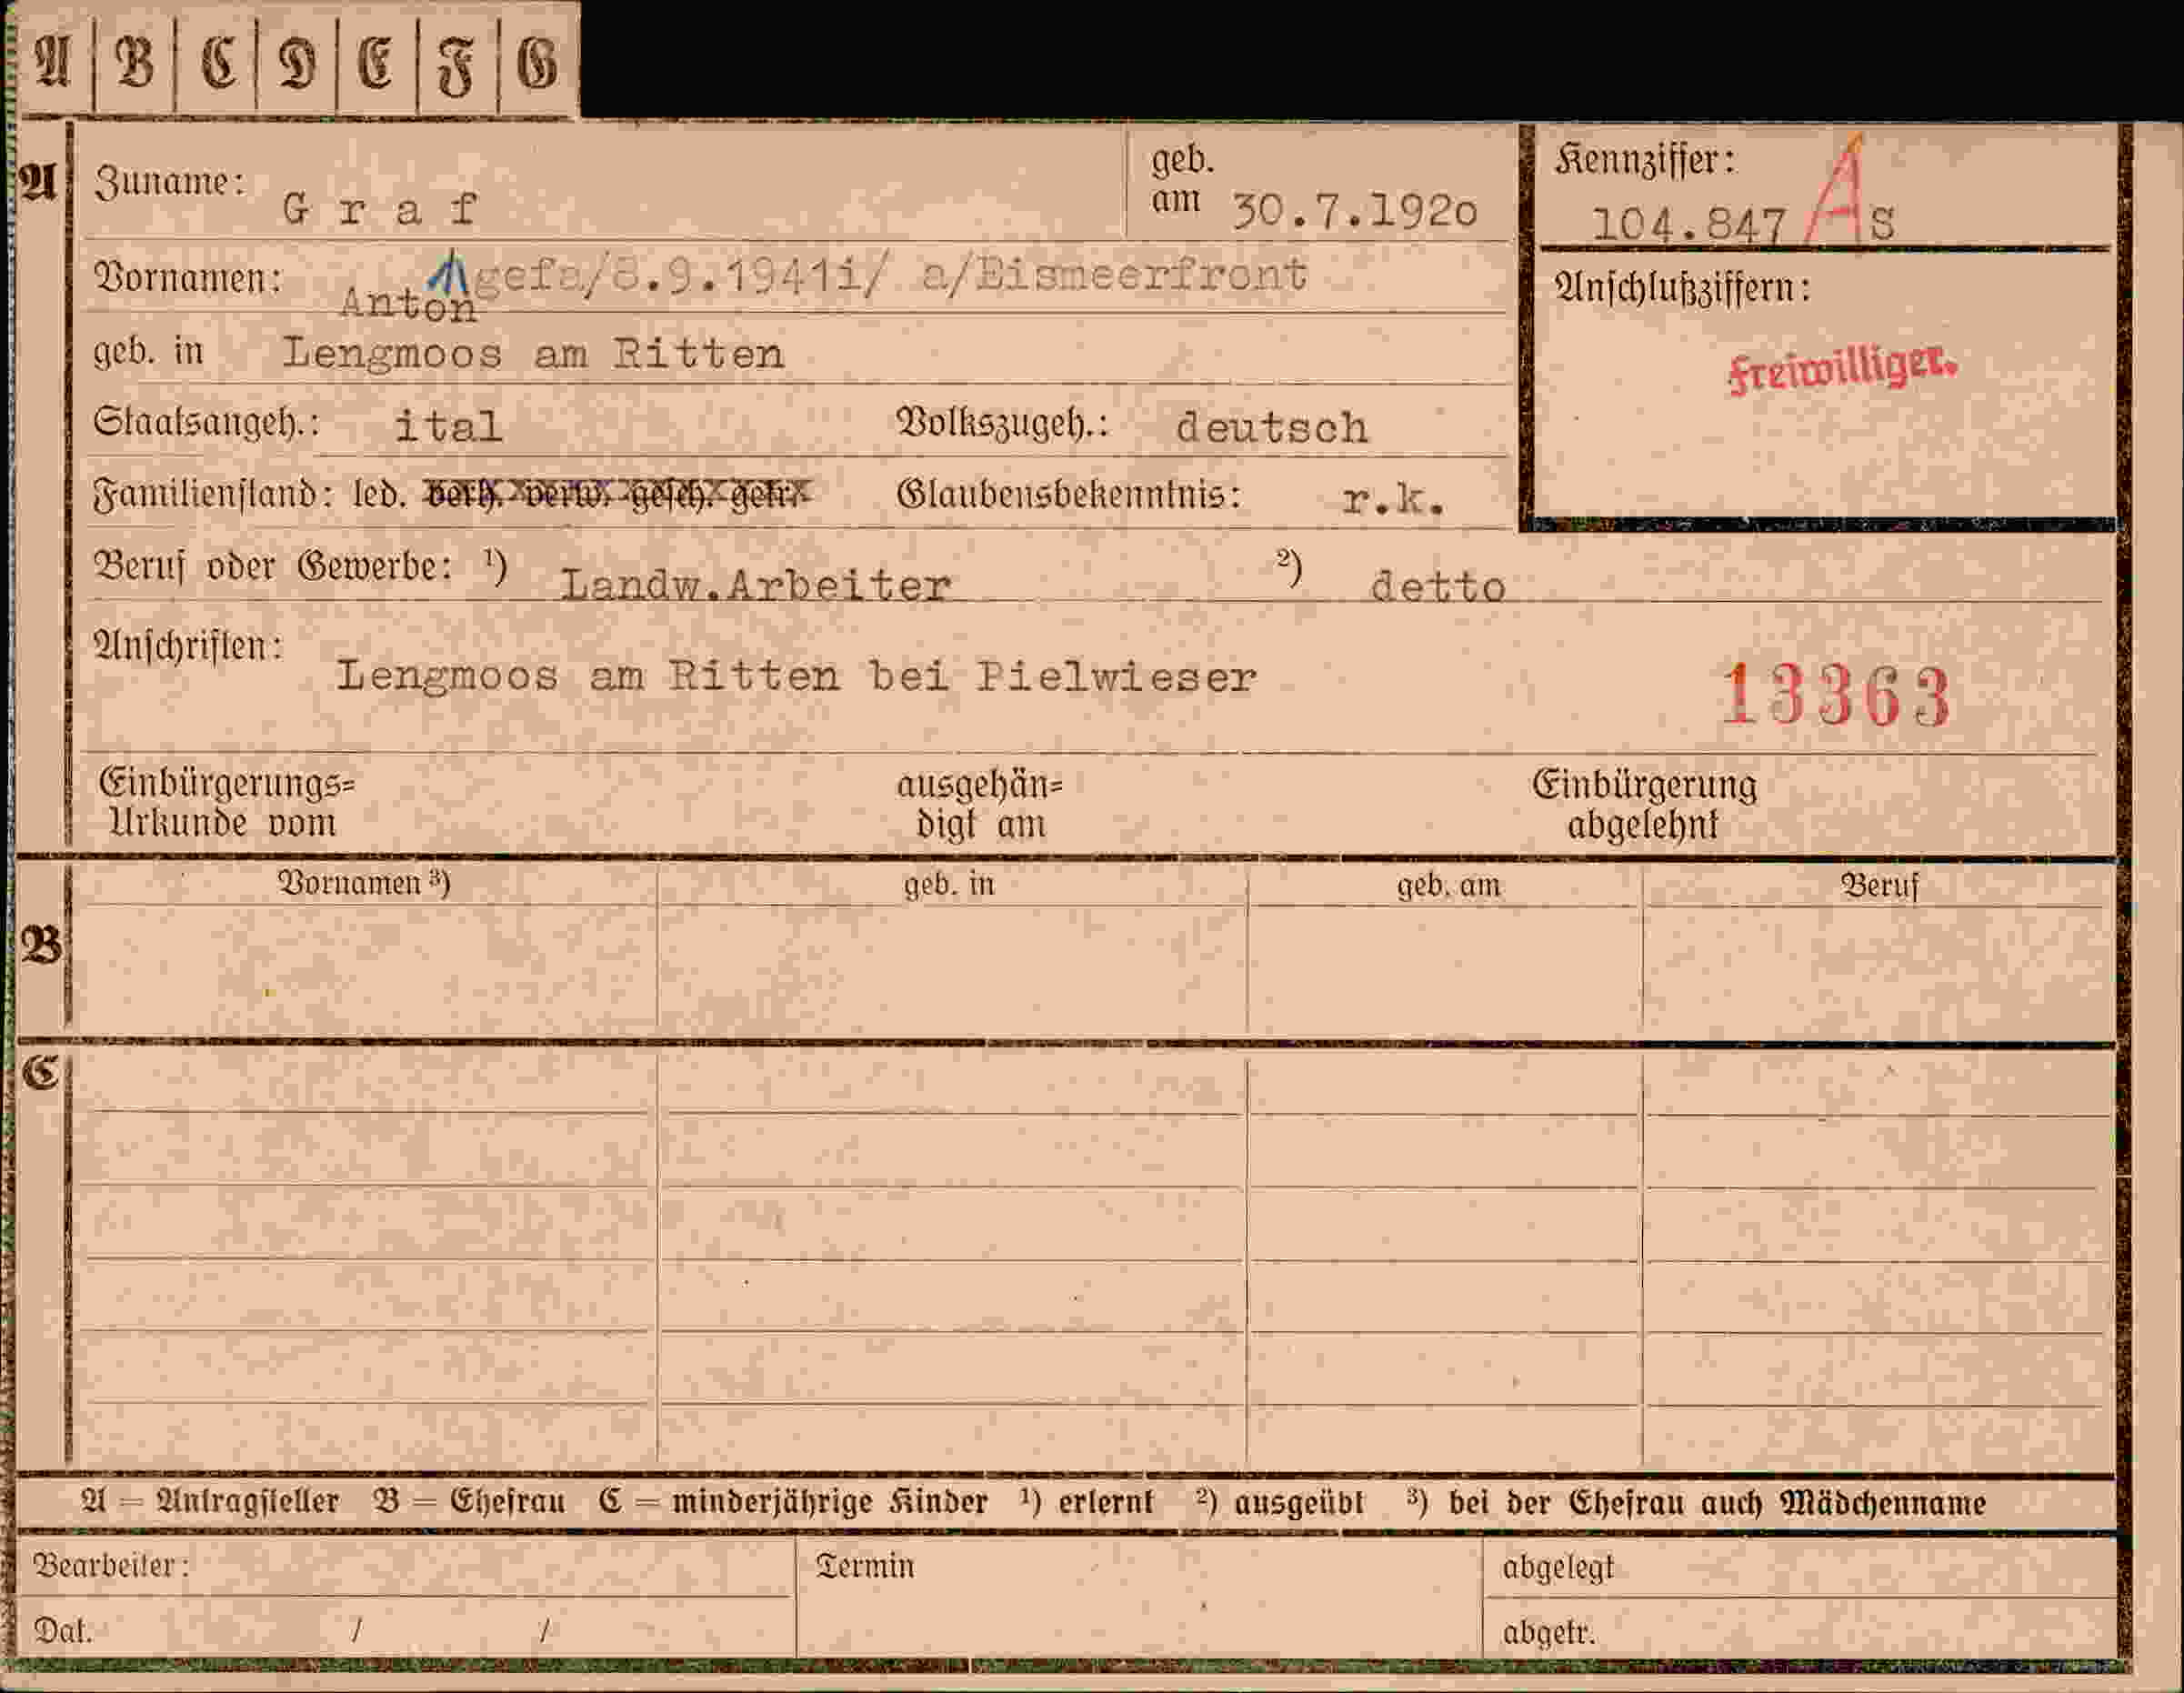 A B C D E F G
A Zuname: Graf geb. am 30.7.1920 Kennziffer: 104.847 A S
Vornamen: Anton gefa/8.9.1941i/ a/Eismeerfront Anschlußziffern:
geb. in Lengmoos am Ritten Freiwilliger.
Staatsangeh.: ital Volkszugeh.: deutsch
Familienstand: led. verh. verw. gesch. getr. Glaubensbekenntnis: r.k.
Beruf oder Gewerbe: ¹) Landw.Arbeiter ²) detto
Anschriften: Lengmoos am Ritten bei Pielwieser 13363
Einbürgerungs= Urkunde vom ausgehän= digt am Einbürgerung abgelehnt
B Vornamen ³) geb. in geb. am Beruf
C
A = Antragsteller B = Ehefrau C = minderjährige Kinder ¹) erlernt ²) ausgeübt ³) bei der Ehefrau auch Mädchenname
Bearbeiter: Termin abgelegt
Dat. / / abgetr.